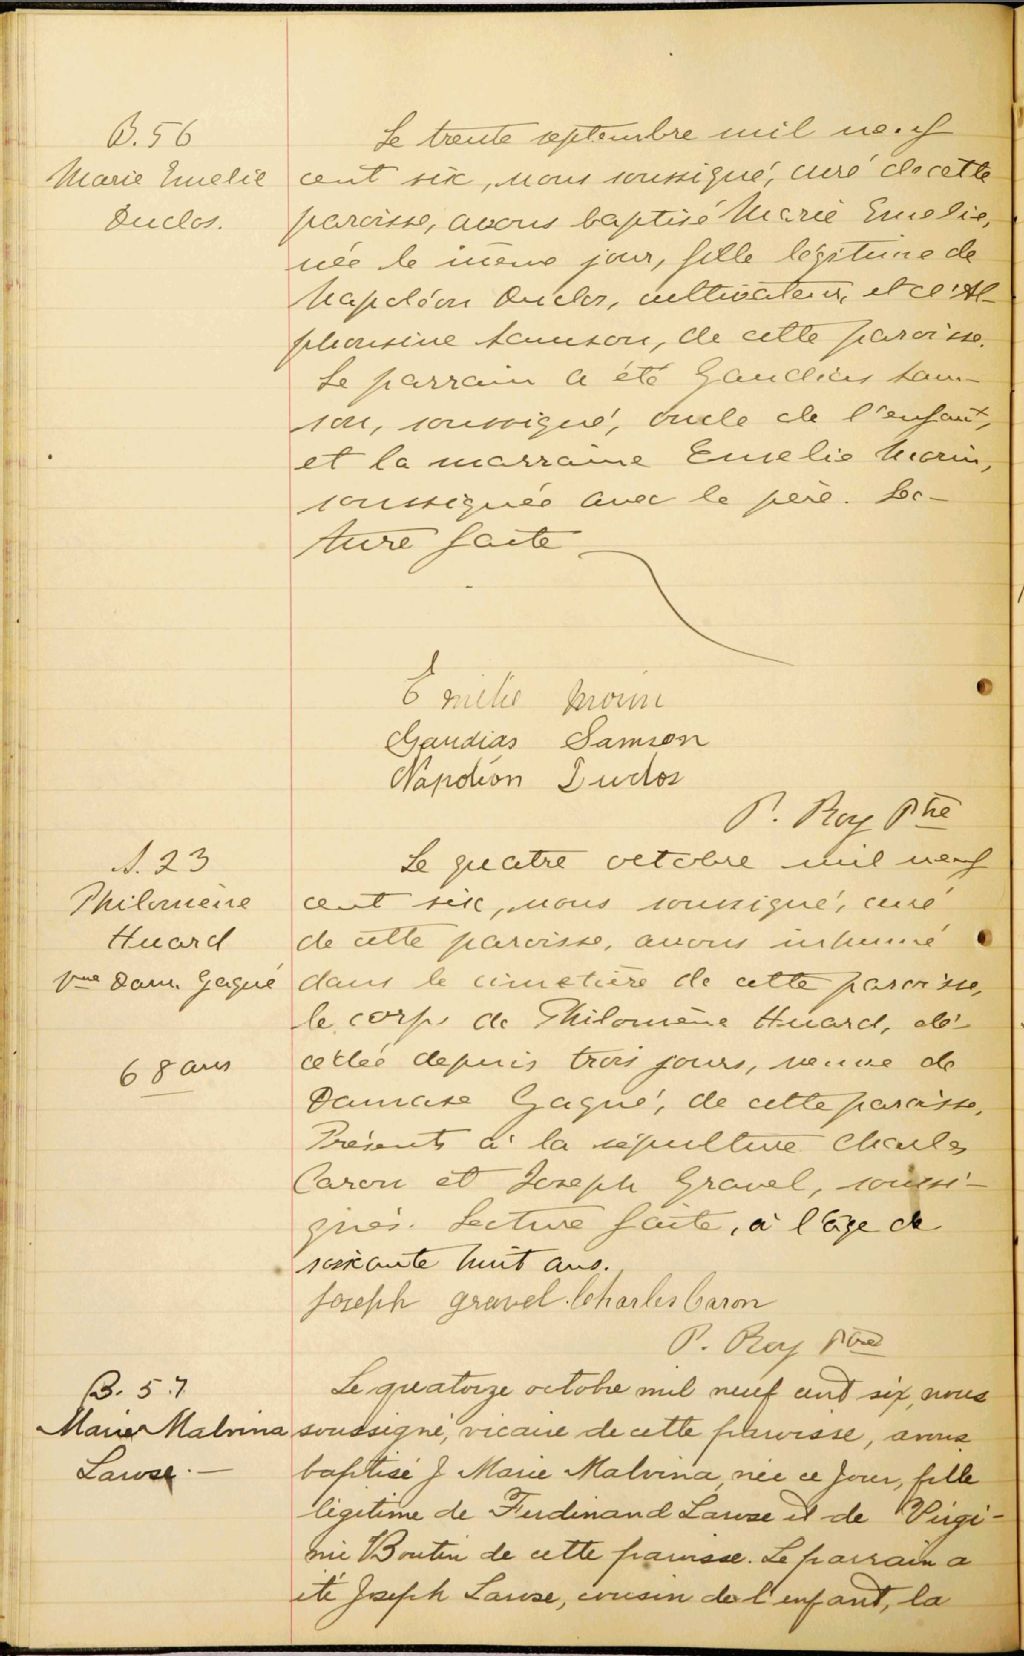 B. 56
Marie Emelie
Duclos.
Le trente septembre mil neuf
cent six, nous soussigné, curé de cette
paroisse, avons baptisé Marie Emelie,
née le même jour, fille légitime de
Napoléon Duclos, cultivateur, et d'Al-
phonsine Samson, de cette paroisse.
Le parrain a été Gaudias Sam-
son, soussigné, oncle de l'enfant,
et la marraine Emelie Morin,
soussignée avec le père. Lec-
ture faite
Emilie Morin
Gaudias Samson
Napoléon Duclos
P. Roy Ptre
S. 23
Philomène
Huard
Vve Dam. Gagné
68 ans
Le quatre octobre mil neuf
cent six, nous soussigné, curé
de cette paroisse, avons inhumé
dans le cimetière de cette paroisse,
le corps de Philomène Huard, dé-
cédée depuis trois jours, veuve de
Damase Gagné, de cette paroisse,
Présents à la sépulture Charles
Caron et Joseph Gravel, soussi-
gnés. Lecture faite, à l'âge de
soixante huit ans.
Joseph Gravel. Charles Caron
P. Roy Ptre
B. 57
Marie Malvina
Larose. —
Le quatorze octobre mil neuf cent six, nous
soussigné, vicaire de cette paroisse, avons
baptisé J Marie Malvina, née ce jour, fille
légitime de Ferdinand Larose et de Virgi-
nie Boutin de cette paroisse. Le parrain a
été Joseph Larose, cousin de l'enfant, la